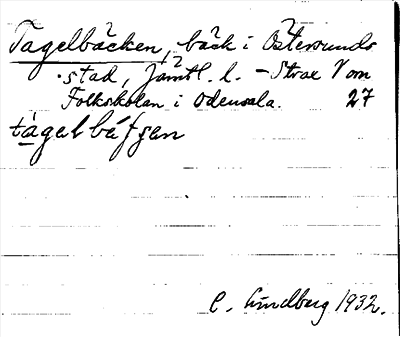 Tagelbäcken, bäck i Östersunds
stad, Jämtl. l. – Strax V om
Folkskolan i Odensala. 27
tàgelbáfsen
C. Lindberg 1932.